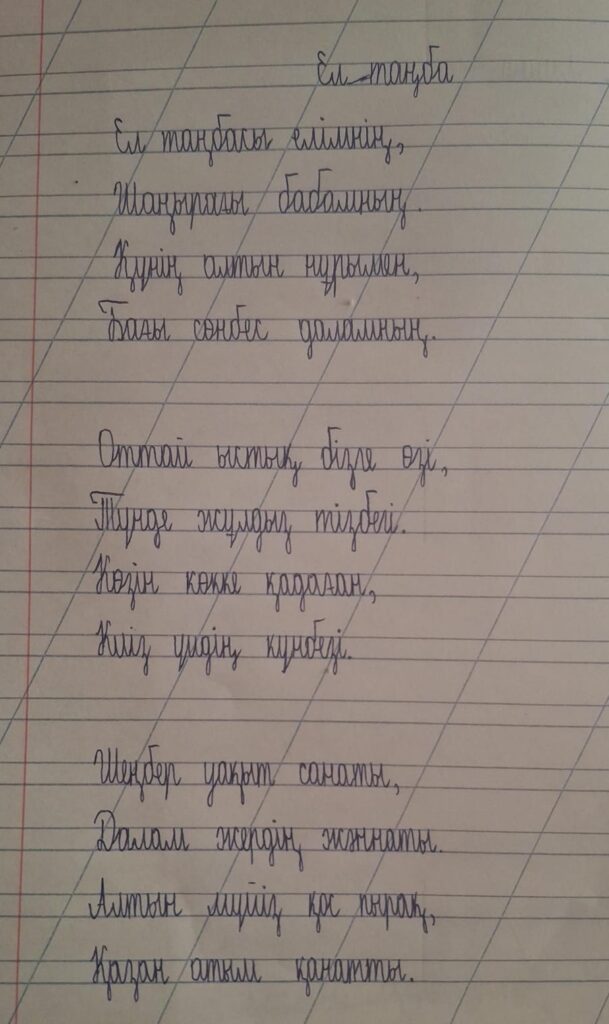 Ел таңба
Ел таңбасы елімнің,
Шаңырағы бабамның.
Күнің алтын нұрымен,
Бағы сөнбес даламның.
Оттай ыстық бізге өзі,
Түнде жұлдыз тізбегі.
Көзін көкке қадаған,
Киіз үйдің күнбезі.
Шеңбер уақыт санаты,
Далам жердің жәннаты.
Алтын мүйіз қос пырақ,
Қазан атым қанатты.